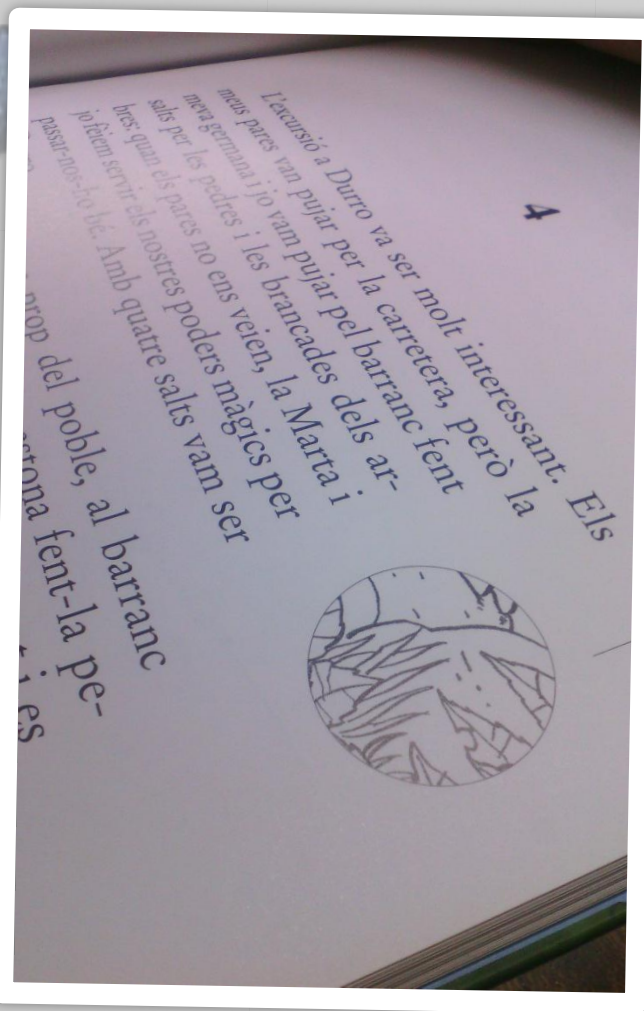 4
L'excursió a Durro va ser molt interessant. Els
meus pares van pujar per la carretera, però la
meva germana i jo vam pujar pel barranc fent
salts per les pedres i les brancades dels ar-
bres; quan els pares no ens veien, la Marta i
jo fèiem servir els nostres poders màgics per
passar-nos-ho bé. Amb quatre salts vam ser
prop del poble, al barranc
estona fent-la pe-
i es